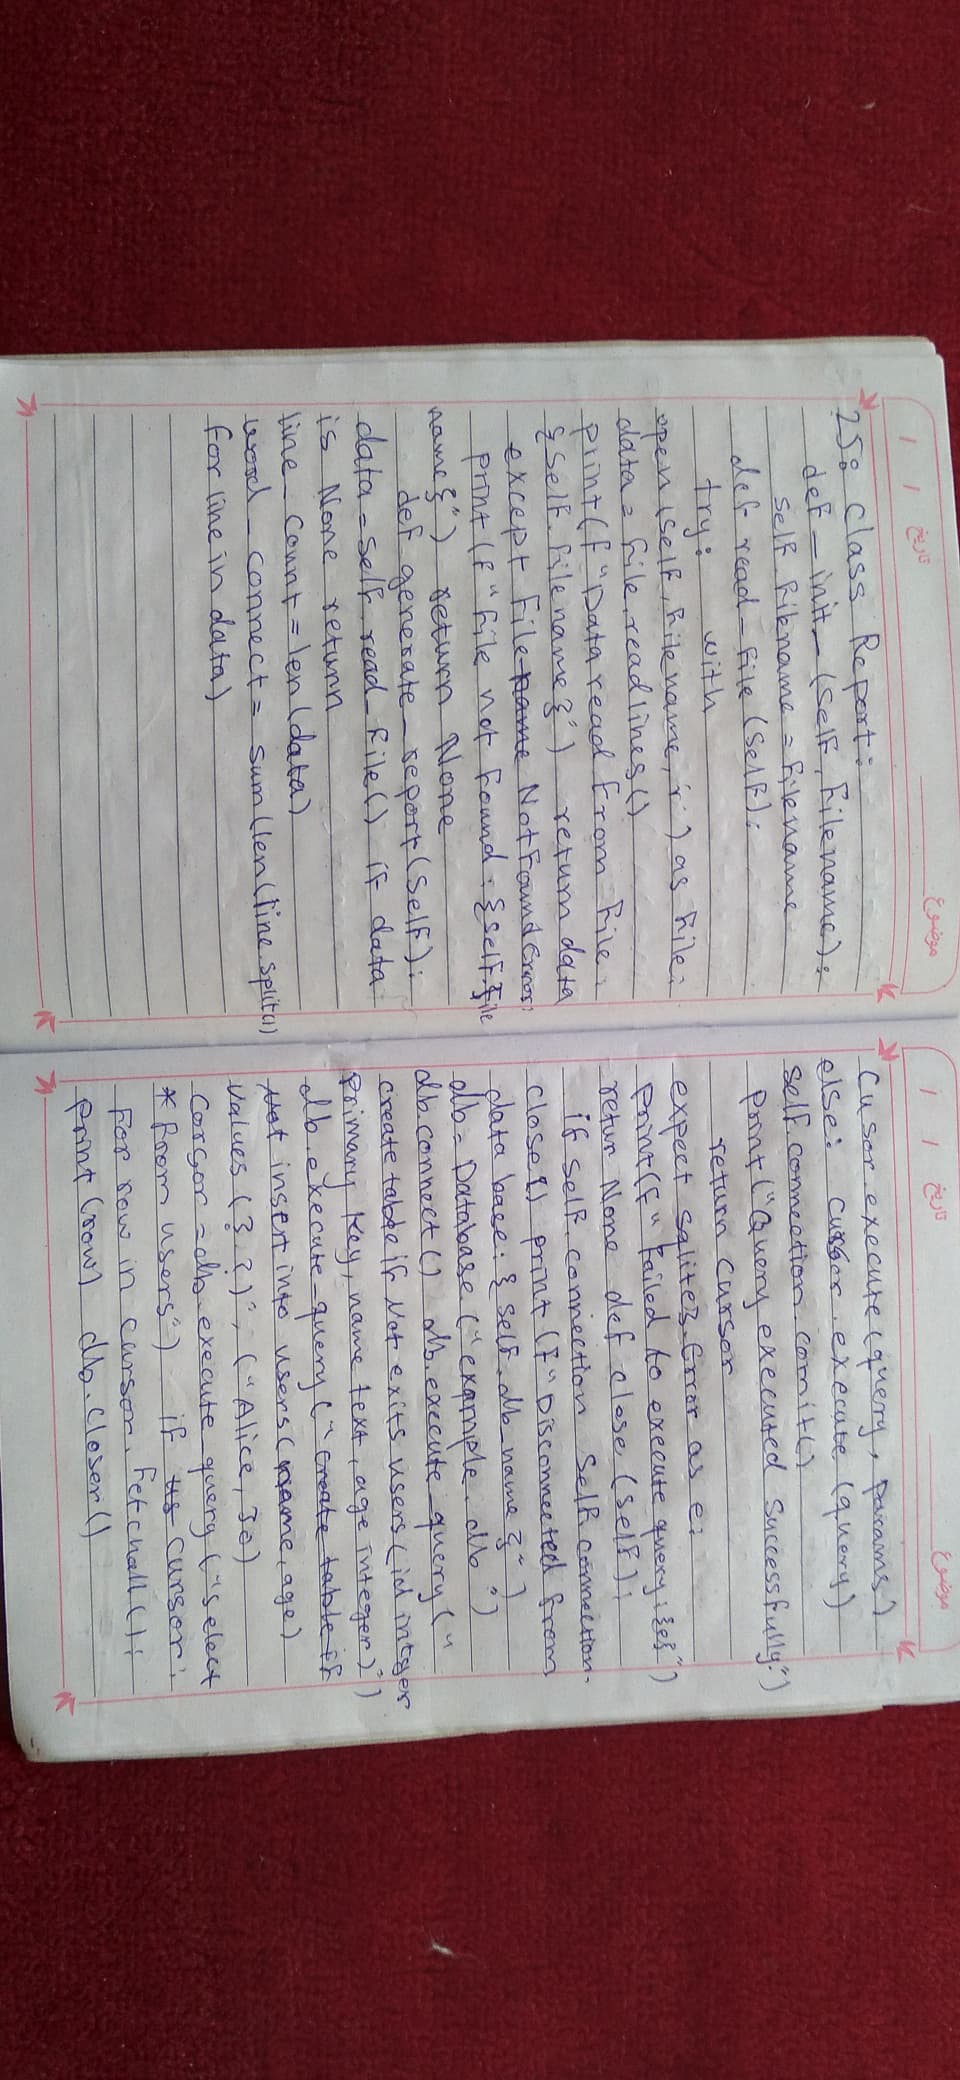 تاریخ / /
موضوع
25: class Report:
def _ init_ (self, filename):
self.filename = filename
def read_file(self):
try: with
open(self.filename, 'r') as file:
data = file.readlines()
print(f"Data read from file:
{self.filename}") return data
except file NotFoundError:
print(f"file not found: {self.file
name}") return None
def generate_report(self):
data = self.read_file() if data
is None return
line_count = len(data)
word_connect = sum(len(line.split())
for line in data)
تاریخ / /
موضوع
Cusor.execute(query, params)
else: cursor.execute(query)
self.connection.comit()
print("Query executed successfully.")
return cursor
expect sqlite3.Error as e:
print(f"Failed to execute query: {e}")
return None def close(self):
if self.connection self.connection.
close() print(f"Disconnected from
data base: {self.db_name}")
db = Database("example.db")
db.connect() db.execute_query("
create table if Not exits users(id integer
primary key, name text, age integer)")
db.execute_query("create table if
Not insert into users(name, age)
values (?.?)", ("Alice, 30)
Corsor = db.execute query ("select
* from users") if cursor:
for row in cursor.fetchall():
print(row) db.closer()